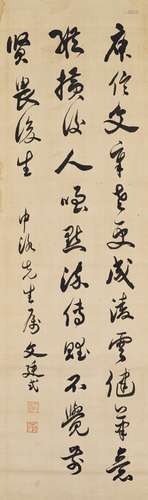 庾信文章老更成凌雲健筆意
縱橫後人嗤點流傳賦不覺前
賢畏後生
中攽先生屬 文廷式